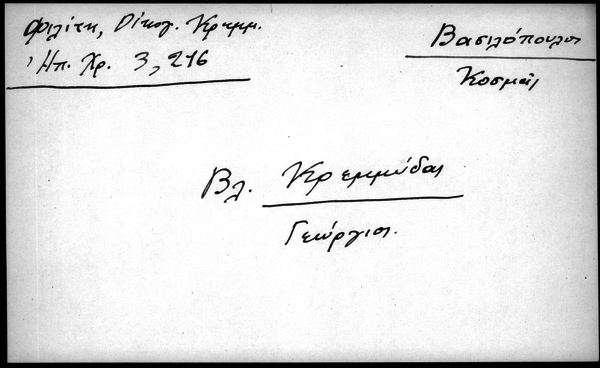 Φιλίτη, Οίκογ. Κρεμμ.
Ήπ. Χρ. 3, 216
Βασιλόπουλος
Κοσμᾶς
Βλ. Κρεμμύδας
Γεώργιος.